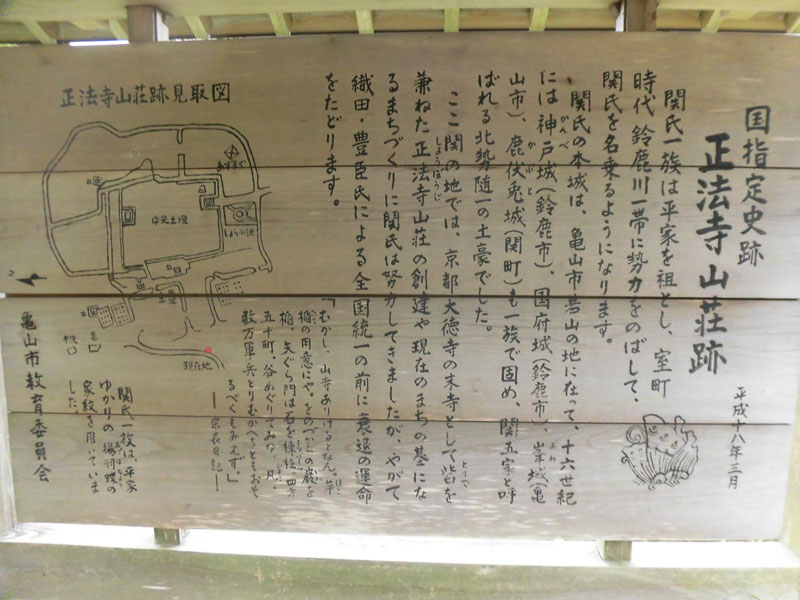 国指定史跡
正法寺山荘跡
平成十八年三月
関氏一族は平家を祖とし、室町
時代 鈴鹿川一帯に勢力をのばして、
関氏を名乗るようになります。
関氏の本城は、亀山市若山の地に在って、十六世紀
には神戸城(鈴鹿市)、国府城(鈴鹿市)、峯城(亀
かんべ
みね
山市)、鹿伏兎城(関町)も一族で固め、関五家と呼
かぶと
ばれる北勢随一の土豪でした。
ここ関の地では、京都大徳寺の末寺として砦を
とりで
兼ねた正法寺山荘の創建や現在のまちの基にな
しょうぼうじ
るまちづくりに関氏は努力してきましたが、やがて
織田・豊臣氏による全国統一の前に衰退の運命
をたどります。
「むかし、山寺ありけるとなん。
楯の用意にや。をのづからの巌を
楯、矢ぐら門は石を棟柱、四方
五十町、谷めぐりてみな、凡、
数万軍兵とりむかへるともおそ
るべくもみえず。」
——宗長日記——
正法寺山荘跡見取図
あずまや
中央土壇
しょうぶ池
土塁
現在地
関氏一族は、平家
ゆかりの揚羽蝶の
家紋を用いていま
した。
亀山市教育委員会